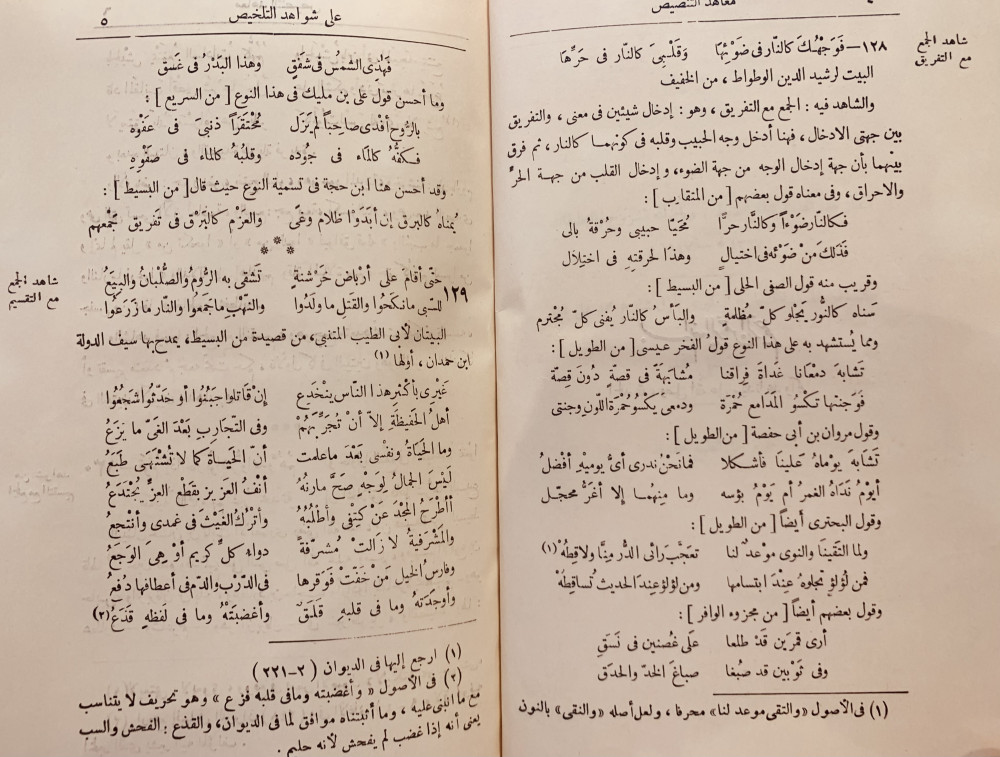 ٤
معاهد التنصيص
شاهد الجمع
مع التفريق
١٢٨ — فَوَجْهُكَ كالنّارِ فى ضَوْئِهَا وَقَلْبِىَ كالنّارِ فى حَرِّهَا
البيت لرشيد الدين الوطواط ، من الخفيف
والشاهد فيه : الجمع مع التفريق ، وهو : إدخال شيئين فى معنى ، والتفريق
بين جهتى الادخال ، فهنا أدخل وجه الحبيب وقلبه فى كونهما كالنار ، ثم فرق
بينهما بأن جهة إدخال الوجه من جهة الضوء ، وإدخال القلب من جهة الحرِّ
والاحراق ، وفى معناه قول بعضهم [ من المتقارب ] :
فكالنّار ضَوْءًا وكالنَّار حرًّا مُحَيّا حبيبى وحُرْقةُ بالى
فَذلكَ مِنْ ضَوْئه فى اختيالٍ وهذَا لحرقتِهِ فى اختِلال
وقريب منه قول الصفى الحلى [ من البسيط ] :
سَناه كالنُّور يَجلو كلّ مُظلمةٍ والبَأسُ كالنّار يُفنى كلّ مُجْترم
ومما يُستشهد به على هذا النوع قولُ الفخر عيسى [ من الطويل ] :
تَشابهَ دمعَانا غَداةَ فِراقنا مُشابَهَةً فى قصةٍ دُونَ قِصّة
فوَجنتها تكسُو المدَامع حُمْرَة ودمعى يَكْسُو حُمْرَةَ اللّونِ وجنتى
وقول مروان بن أبى حفصة [ من الطويل ] :
تَشَابَهَ يوْمَاهُ عَلينَا فأشكلا فمَا نَحْنُ ندرى أىُّ يوميْهِ أفْضَلُ
أيوْمُ نَدَاهُ الغمرُ أم يَوْمُ بؤسه وما مِنهُما إلا أغَرُّ محجّل
وقول البحترى أيضًا [ من الطويل ] :
ولما التقَينَا والنوى موْعدٌ لنا تعَجَّبَ رائى الدُّر مِنّا ولاقِطُهْ (١)
فمن لُؤلؤٍ تجلوهُ عنْدَ ابتسامها ومن لؤلؤٍ عندَ الحديث تُساقِطُهْ
وقول بعضهم أيضًا [ من مجزوء الوافر ] :
أرى قمرَين قَدْ طلعا علَى غُصنين فى نَسَق
وفى ثَوْبين قد صُبغا صباغَ الخدّ والحدَق
(١) فى الأصول « والتقى موعد لنا » محرفا ، ولعل أصله « والنقى » بالنون
على شواهد التلخيص
٥
فهٰذى الشمْسُ فى شَفَقٍ وهذا البَدْرُ فى غَسَق
وما أحسن قول على بن مليك فى هذا النوع [ من السريع ] :
بالرُّوح أفْدى صاحِبًا لم يَزَل مُحْتقرًا ذنبىَ فى عَفْوِهِ
فكفُّهُ كالمَاء فى جُودِه وقلبُهُ كالماء فى صَفْوِهِ
وقد أحسن هنا ابن حجة فى تسمية النوع حيث قال [ من البسيط ] :
يُمناه كالبرق إن أبدَوْا ظلامَ وَغًى والعَزْم كالبَرْق فى تَفريق جَمْعهمِ
* * *
شاهد الجمع
مع التقسيم
١٢٩
حتّى أقامَ على أرْباض خَرْشنَةٍ تَشقى به الرُّومُ والصُّلْبانُ والبِيَعُ
للسّبى ما نكَحُوا والقَتلِ ما ولَدُوا والنّهْبِ ما جَمَعوا والنّار ما زَرَعُوا
البيتان لأبى الطيب المتنبى ، من قصيدة من البسيط ، يمدح بها سيف الدولة
ابن حمدان ، أولها (١)
غَيْرى بأكثرِ هذا النّاس ينْخَدِعُ إنْ قاتلوا جَبُنُوا أو حَدّثُوا شَجُعُوا
أهلُ الحَفيظَةِ إلاّ أنْ تُجَرِّبَهُمْ وفى التّجارِب بَعْدَ الغَىّ ما يَزَعُ
وما الحَيَاةُ ونفْسى بَعْدَ ما علمت أنّ الحَيَاةَ كما لا تُشْتَهَى طَبَعُ
لَيْسَ الجمالُ لِوَجْهٍ صَحَّ مارنُهُ أنْفُ العَزيزِ بقَطْعِ العزِّ يُجْتَدَعُ
أأطْرَحُ المجْدَ عَنْ كِتفى وأطلُبُهُ وأترُكُ الغَيْثَ فى غمدى وأنْتجِعُ
والمَشْرَفيةُ لا زَالَتْ مُشرّفةً دواءُ كلِّ كريم أوْ هِىَ الوَجَعُ
وفارسُ الخيل مَنْ خَفّتْ فوَقرها فى الدّرْبِ والدّم فى أعطافها دُفَعُ
وأوحَدَتهُ وما فى قلبهِ قلَقٌ وأغضبَتْهُ وما فى لَفظهِ قَذَعُ (٢)
(١) ارجع إليها فى الديوان ( ٢ - ٢٢١ )
(٢) فى الأصول « وأغضبته وما فى قلبه فزع » وهو تحريف لا يتناسب
مع ما انبنى عليه ، وما أثبتناه موافق لما فى الديوان ، والقذع : الفحش والسب
يعنى أنه إذا غضب لم يفحش لأنه حليم .